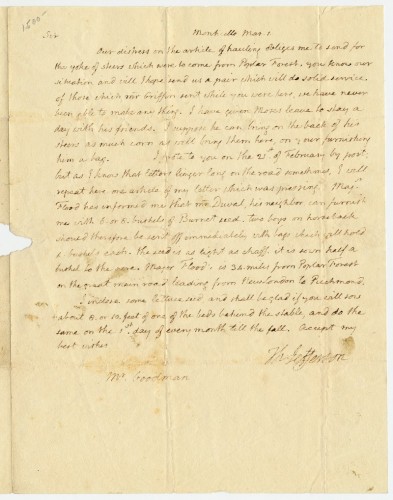 Sir Mont.llo Mar. 1.
Our distress on the article of hauling obliges me to send for
the yoke of steers which were to come from Poplar Forest. you know our
situation and will I hope send us a pair which will do solid service.
of those which mr Griffin sent while you were here, we have never
been able to make any thing. I have given Moses leave to stay a
day with his friends. I suppose he can bring on the back of his
steers as much corn as will bring them here, on your furnishing
him a bag. I wrote to you on the 21st of February by post;
but as I know that letters linger long on the road sometimes, I will
repeat here one article of my letter which was pressing. Majr
Flood has informed me that mr Duval, his neighbor can furnish
me with 6. or 8. bushels of Burnet seed. two boys on horseback
should therefore be sent off immediately with bags which will hold
a bushel each. the seed is as light as chaff. it is sown half a
bushel to the acre. Major Flood is 32 miles from Poplar Forest
on the great main road leading from New London to Richmond.
I inclose some lettuce seed and shall be glad if you will sow
about 8. or 10. feet of one of the beds behind the stable, and do the
same on the 1st day of every month till the fall. Accept my
best wishes
Th: Jefferson
Mr. Goodman